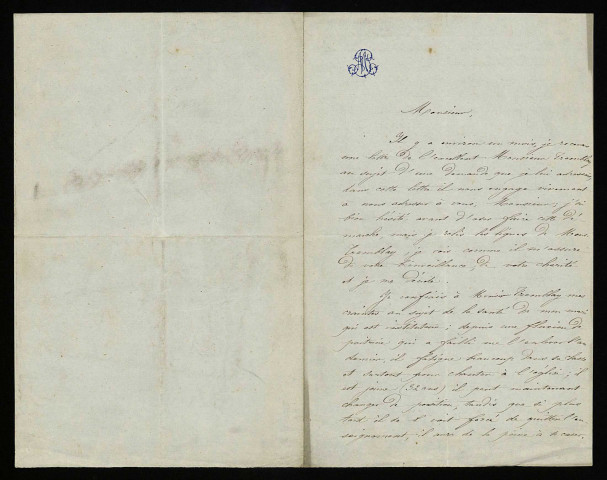 Monsieur,
Il y a environ un mois, je recevais
une lettre de l'excellent Monsieur Tremblay
au sujet d'une demande que je lui adressais,
dans cette lettre il nous engage vivement
à nous adresser à vous, Monsieur; j'ai
bien hésité avant d'oser faire cette dé
marche, mais je relis les lignes de Mons.
Tremblay, je vois comme il m'assure
de votre bienveillance, de votre charité
et je me décide.
Je confiais à Monsieur Tremblay mes
craintes au sujet de la santé de mon mari
qui est instituteur; depuis une fluxion de
poitrine qui a failli me l'enlever l'an
dernier, il fatigue beaucoup dans sa classe
et surtout pour chanter à l'église; il
est jeune (32 ans) il peut maintenant
changer de position, tandis que si plus
tard il se voit forcé de quitter l'en
seignement, il aura de la peine à se caser.